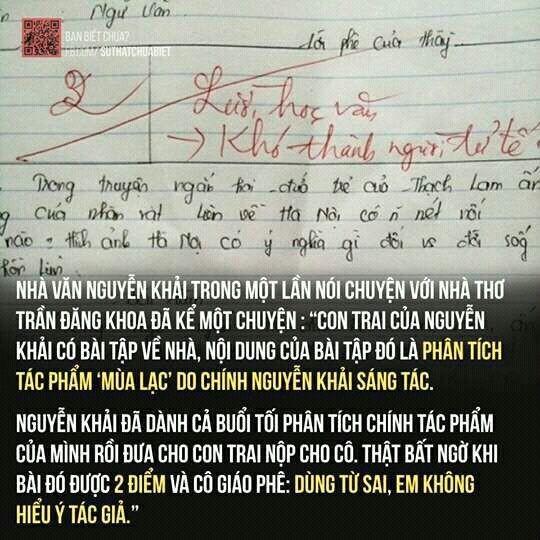 Ngữ Văn
BẠN BIẾT CHƯA?
FB.COM/ SUTHATCHUABIET
Lời phê của thầy
2
Lười học văn
→ Khó thành người tử tế
Trong truyện ngắn hai đứa trẻ của Thạch Lam ấn
của nhân vật Liên về Hà Nội, có n nét nổi
nào? Hình ảnh Hà Nội có ý nghĩa gì đối vs đời
Liên
NHÀ VĂN NGUYỄN KHẢI TRONG MỘT LẦN NÓI CHUYỆN VỚI NHÀ THƠ
TRẦN ĐĂNG KHOA ĐÃ KỂ MỘT CHUYỆN : “CON TRAI CỦA NGUYỄN
KHẢI CÓ BÀI TẬP VỀ NHÀ, NỘI DUNG CỦA BÀI TẬP ĐÓ LÀ PHÂN TÍCH
TÁC PHẨM ‘MÙA LẠC’ DO CHÍNH NGUYỄN KHẢI SÁNG TÁC.
NGUYỄN KHẢI ĐÃ DÀNH CẢ BUỔI TỐI PHÂN TÍCH CHÍNH TÁC PHẨM
CỦA MÌNH RỒI ĐƯA CHO CON TRAI NỘP CHO CÔ. THẬT BẤT NGỜ KHI
BÀI ĐÓ ĐƯỢC 2 ĐIỂM VÀ CÔ GIÁO PHÊ: DÙNG TỪ SAI, EM KHÔNG
HIỂU Ý TÁC GIẢ.”